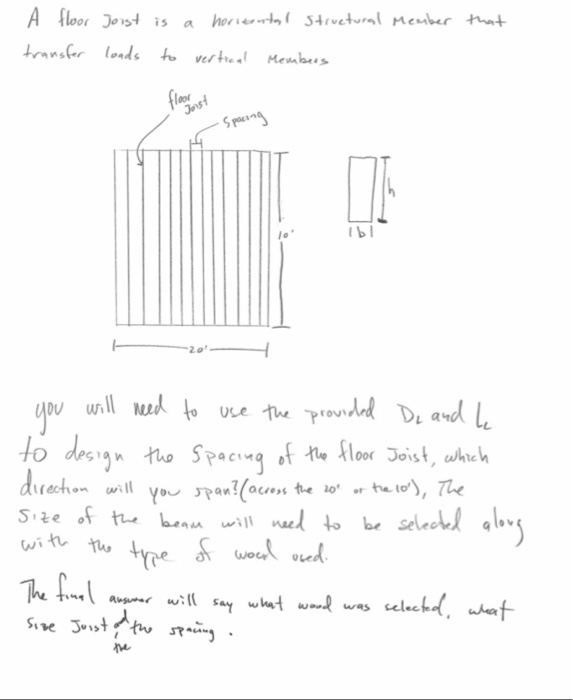 A floor Joist is a horizontal structural Member that
transfer loads to vertical Members
floor
Joist
spacing
10'
h
b
20'
you will need to use the provided DL and LL
to design the Spacing of the floor Joist, which
direction will you span? (across the 20' or the 10'), The
Size of the beam will need to be selected along
with the type of wood used.
The final answer will say what wood was selected, what
size Joist, & the spacing.
the